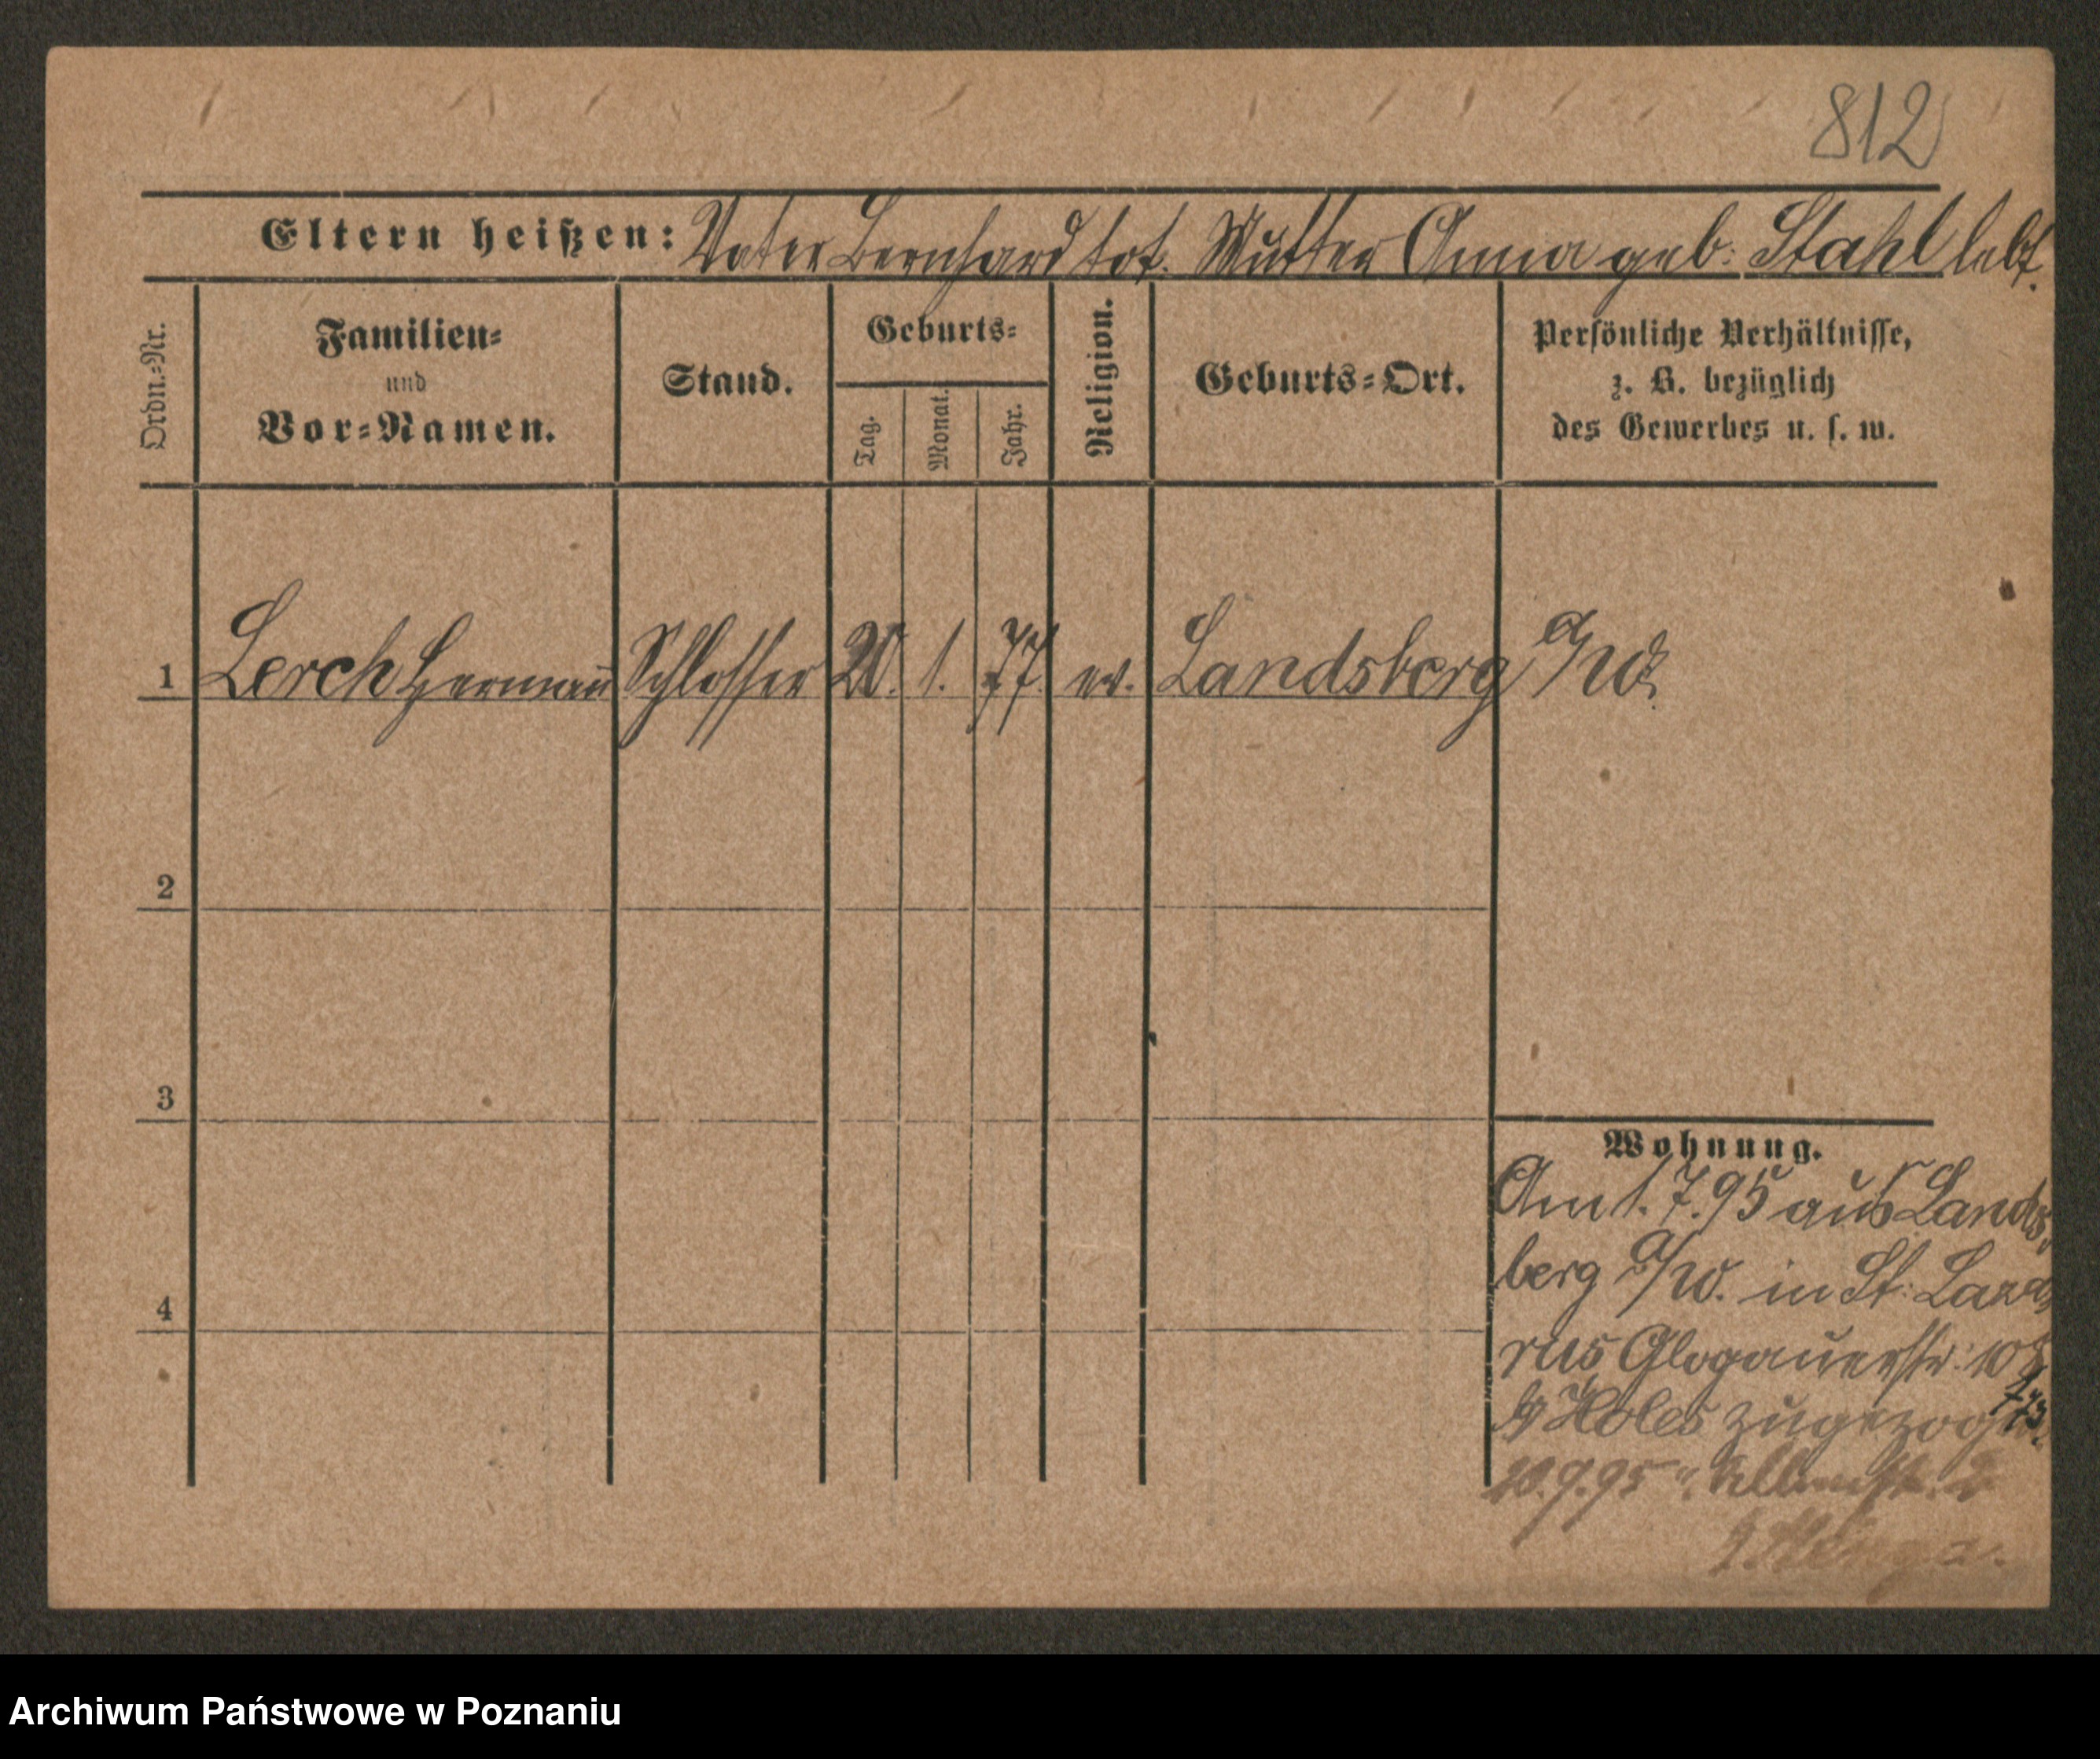 812
Eltern heißen: Vater Bernhard tot. Mutter Anna geb: Stahl lebt.
Ordn.-Nr.
Familien-
und
Vor-Namen.
Stand.
Geburts-
Tag.
Monat.
Jahr.
Religion.
Geburts-Ort.
Persönliche Verhältnisse,
z. B. bezüglich
des Gewerbes u. s. w.
1 Lerch Herman̄ Schlosser 20. 1. 77. ev. Landsberg a/W.
2
3
4
Wohnung.
Am 1.7.95 aus Lands-
berg a/W. in St: Laza-
rus Glogauerstr: 108
zugezog
20.9.95
Archiwum Państwowe w Poznaniu